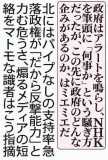 政府はアラートを鳴らし、ＮＨＫ
を筆頭に「何事か」と大騒ぎ
だったが、この先に政府のどんな
企みがあるのか、はミエミエだ
北にはバイブなしの支持率急
落政権が「だから反撃能力」と
力む危うさ、煽るメディアの短
絡をマトモな識者はこう指摘